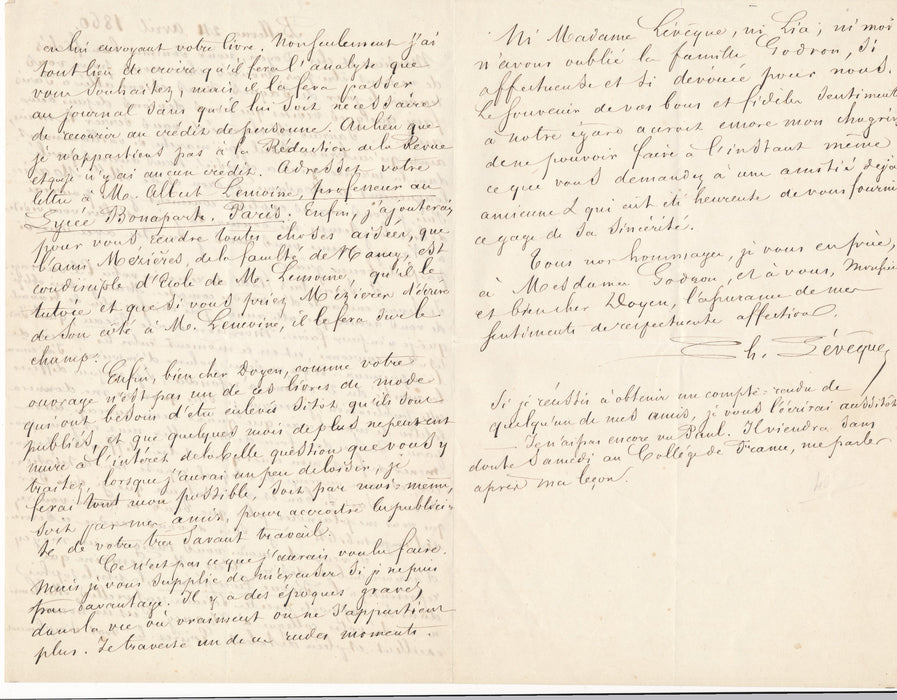 en lui envoyant votre livre. Non seulement j'ai
tout lieu de croire qu'il fera l'analyse que
vous souhaitez, mais il la fera passer
au journal sans qu'il lui soit nécessaire
de recourir au crédit de personne. Au lieu que
je n'appartiens pas à la Rédaction de la Revue
et que je n'y ai aucun crédit. Adressez votre
lettre à M. Albert Lemoine, professeur au
Lycée Bonaparte. Paris. Enfin, j'ajouterai,
pour vous rendre toutes choses aisées, que
l'ami Mézières, de la faculté de Nancy, est
condisciple d'Ecole de M. Lemoine, qu'il le
tutoie et que si vous priez Mézières d'écrire
de son côté à M. Lemoine, il le fera sur le
champ.
Enfin, bien cher Doyen, comme votre
ouvrage n'est pas un de ces livres de mode
qui ont besoin d'être enlevés sitôt qu'ils sont
publiés, et que quelques mois de plus ne peuvent
nuire à l'intérêt de la belle question que vous y
traitez, lorsque j'aurai un peu de loisir, je
ferai tout mon possible, soit par moi-même,
soit par mes amis, pour accroître la publici-
té de votre très savant travail.
Ce n'est pas ce que j'aurais voulu faire.
Mais je vous supplie de m'excuser si je ne puis
pas davantage. Il y a des époques graves
dans la vie où vraiment on ne s'appartient
plus. Je traverse un de ces rudes moments.
Ni Madame Lévêque, ni Lia, ni moi
n'avons oublié la famille Godron, si
affectueuse et si dévouée pour nous.
Le souvenir de vos bons et fidèles sentiments
à notre égard accroît encore mon chagrin
de ne pouvoir faire à l'instant même
ce que vous demandez à une amitié déjà
ancienne et qui eût été heureuse de vous fournir
ce gage de sa sincérité.
Tous nos hommages, je vous en prie,
à Mesdames Godron, et à vous, Monsieur
et bien cher Doyen, l'assurance de mes
sentiments de respectueuse affection.
Ch. Lévêque,
Si je réussis à obtenir un compte-rendu de
quelqu'un de mes amis, je vous l'écrirai aussitôt.
Je n'ai pas encore vu Paul. Il viendra sans
doute samedi au Collège de France, me parler
après ma leçon.